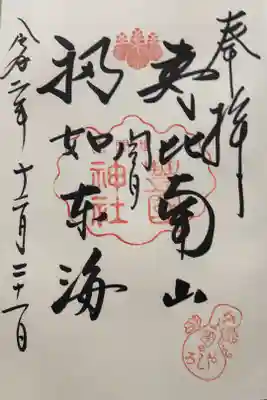 奉拝
寿比南山
豊國
神社
福如东海
令和二年 十二月二十一日